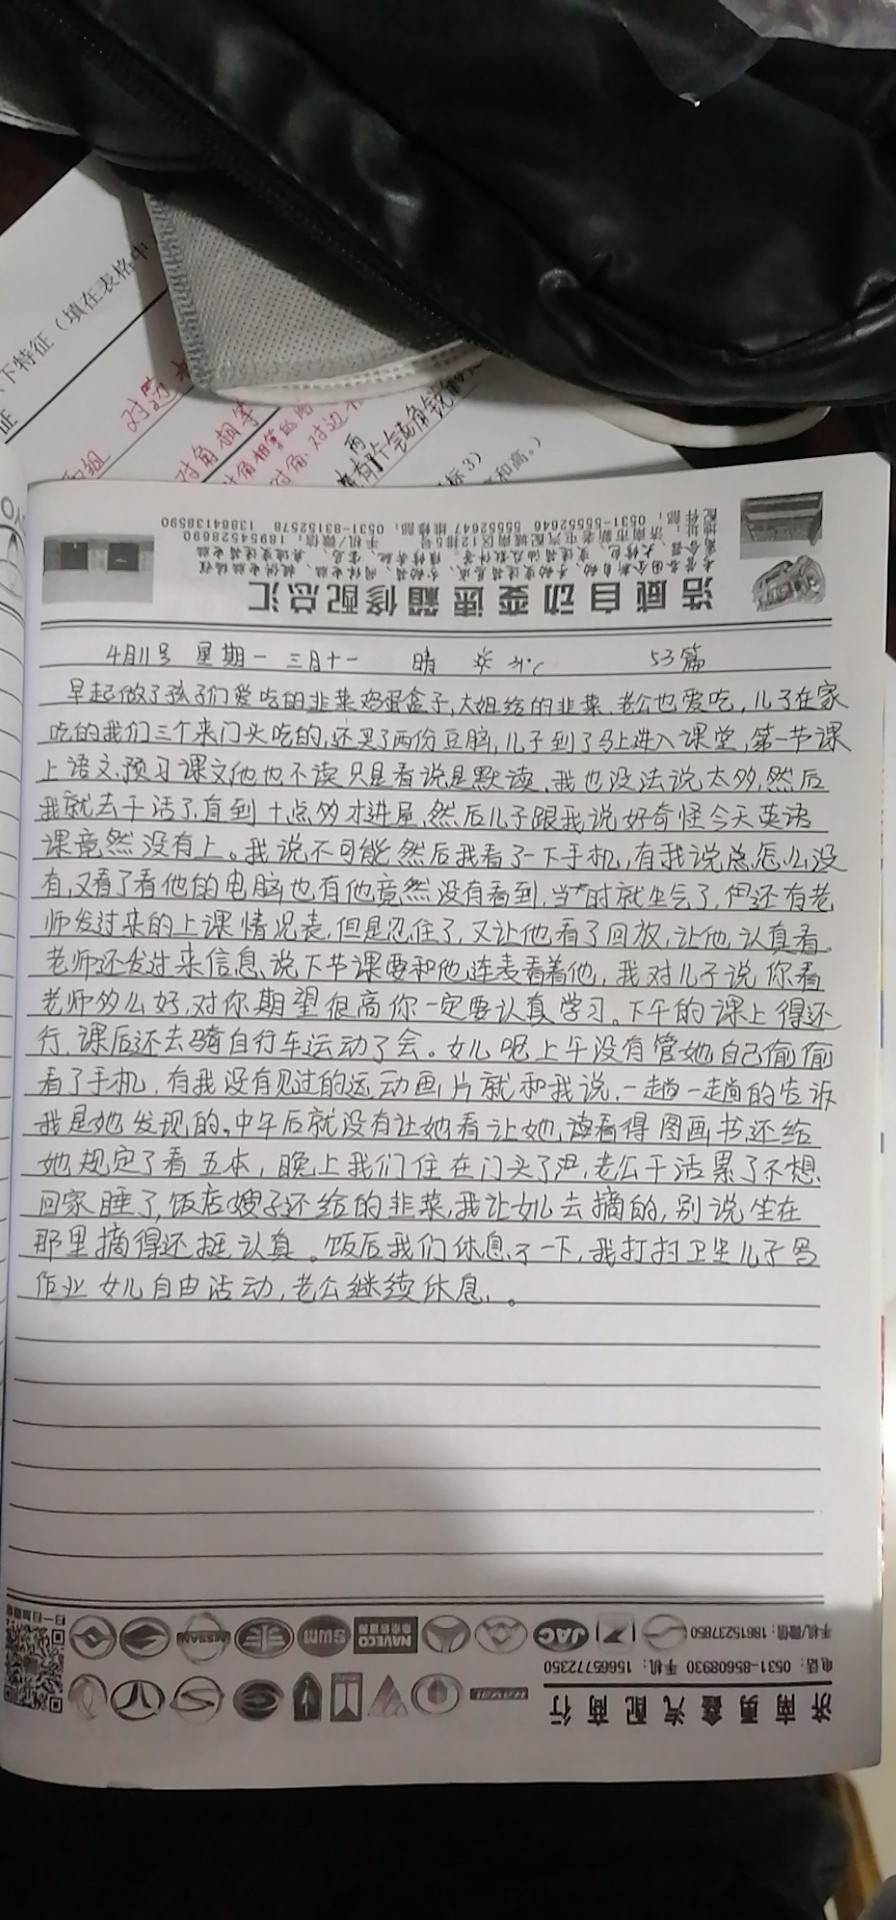 下特征(填在表格中
证
对边
对角相等
对角相等
对角.对边
两
有个锐角
标3)
和高。)
浩威自动变速箱修配总汇
地址:济南市新老屯汽配城南区12排5号 手机/微信:18954528690
配件部:0531-55552646 55552647 维修部:0531-83152578 13864138590
4月11号 星期一 三月十一 晴 31℃ 53篇
早起做了孩子们爱吃的韭菜鸡蛋盒子,大姐给的韭菜.老公也爱吃,儿子在家
吃的我们三个来门头吃的,还买了两份豆脑,儿子到了马上进入课堂,第一节课
上语文.预习课文他也不读只是看说是默读.我也没法说太多,然后
我就去干活了.直到十点多才进屋,然后儿子跟我说好奇怪今天英语
课竟然没有上。我说不可能然后我看了一下手机,有我说总怎么没
有,又看了看他的电脑也有他竟然没有看到,当时就生气了,但还有老
师发过来的上课情况表,但是忍住了,又让他看了回放,让他认真看。
老师还发过来信息,说下节课要和他连麦看着他,我对儿子说你看
老师多么好,对你期望很高你一定要认真学习。下午的课上得还
行.课后还去骑自行车运动了会。女儿呢上午没有管她自己偷偷
看了手机,有我没有见过的运动画片就和我说,一趟一趟的告诉
我是她发现的,中午后就没有让她看让她读看得图画书,还给
她规定了看五本,晚上我们住在门头了,老公干活累了不想
回家睡了,饭店嫂子还给的韭菜,我让女儿去摘的,别说坐在
那里摘得还挺认真。饭后我们休息了一下,我打扫卫生儿子写
作业女儿自由活动,老公继续休息.。
扫一扫加微信
NISSAN
SWM
NAVECO
JAC
手机/微信:18615237850
HAVAL
电话:0531-85608930 手机:15665772350
济南勇鑫汽配商行